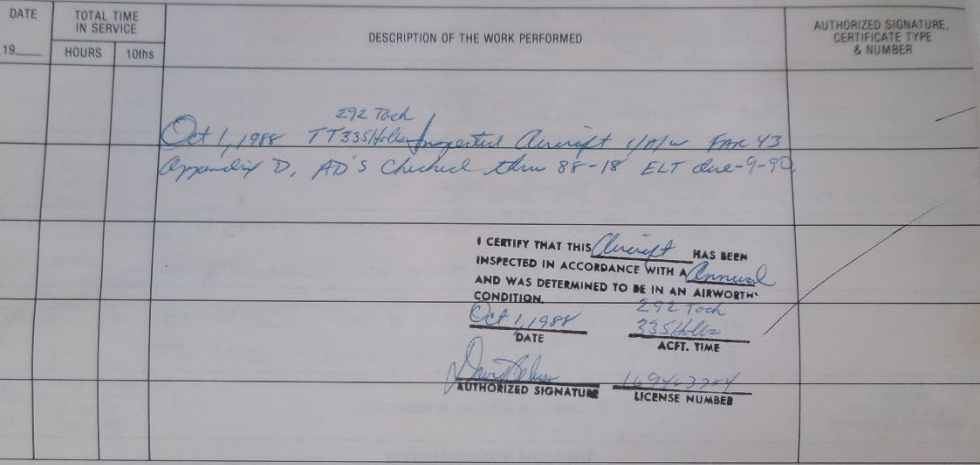 DATE
19
TOTAL TIME
IN SERVICE
HOURS
10ths
DESCRIPTION OF THE WORK PERFORMED
AUTHORIZED SIGNATURE,
CERTIFICATE TYPE
& NUMBER
292 Tach
Oct 1, 1988 TT 335 Hobbs Inspected Aircraft I/A/W FAR 43
Appendix D, AD'S Checked thru 88-18 ELT due-9-90
I CERTIFY THAT THIS Aircraft HAS BEEN
INSPECTED IN ACCORDANCE WITH A Annual
AND WAS DETERMINED TO BE IN AN AIRWORTHY
CONDITION.
292 Tach
Oct 1, 1988 335 Hobbs
DATE ACFT. TIME
David
AUTHORIZED SIGNATURE LICENSE NUMBER